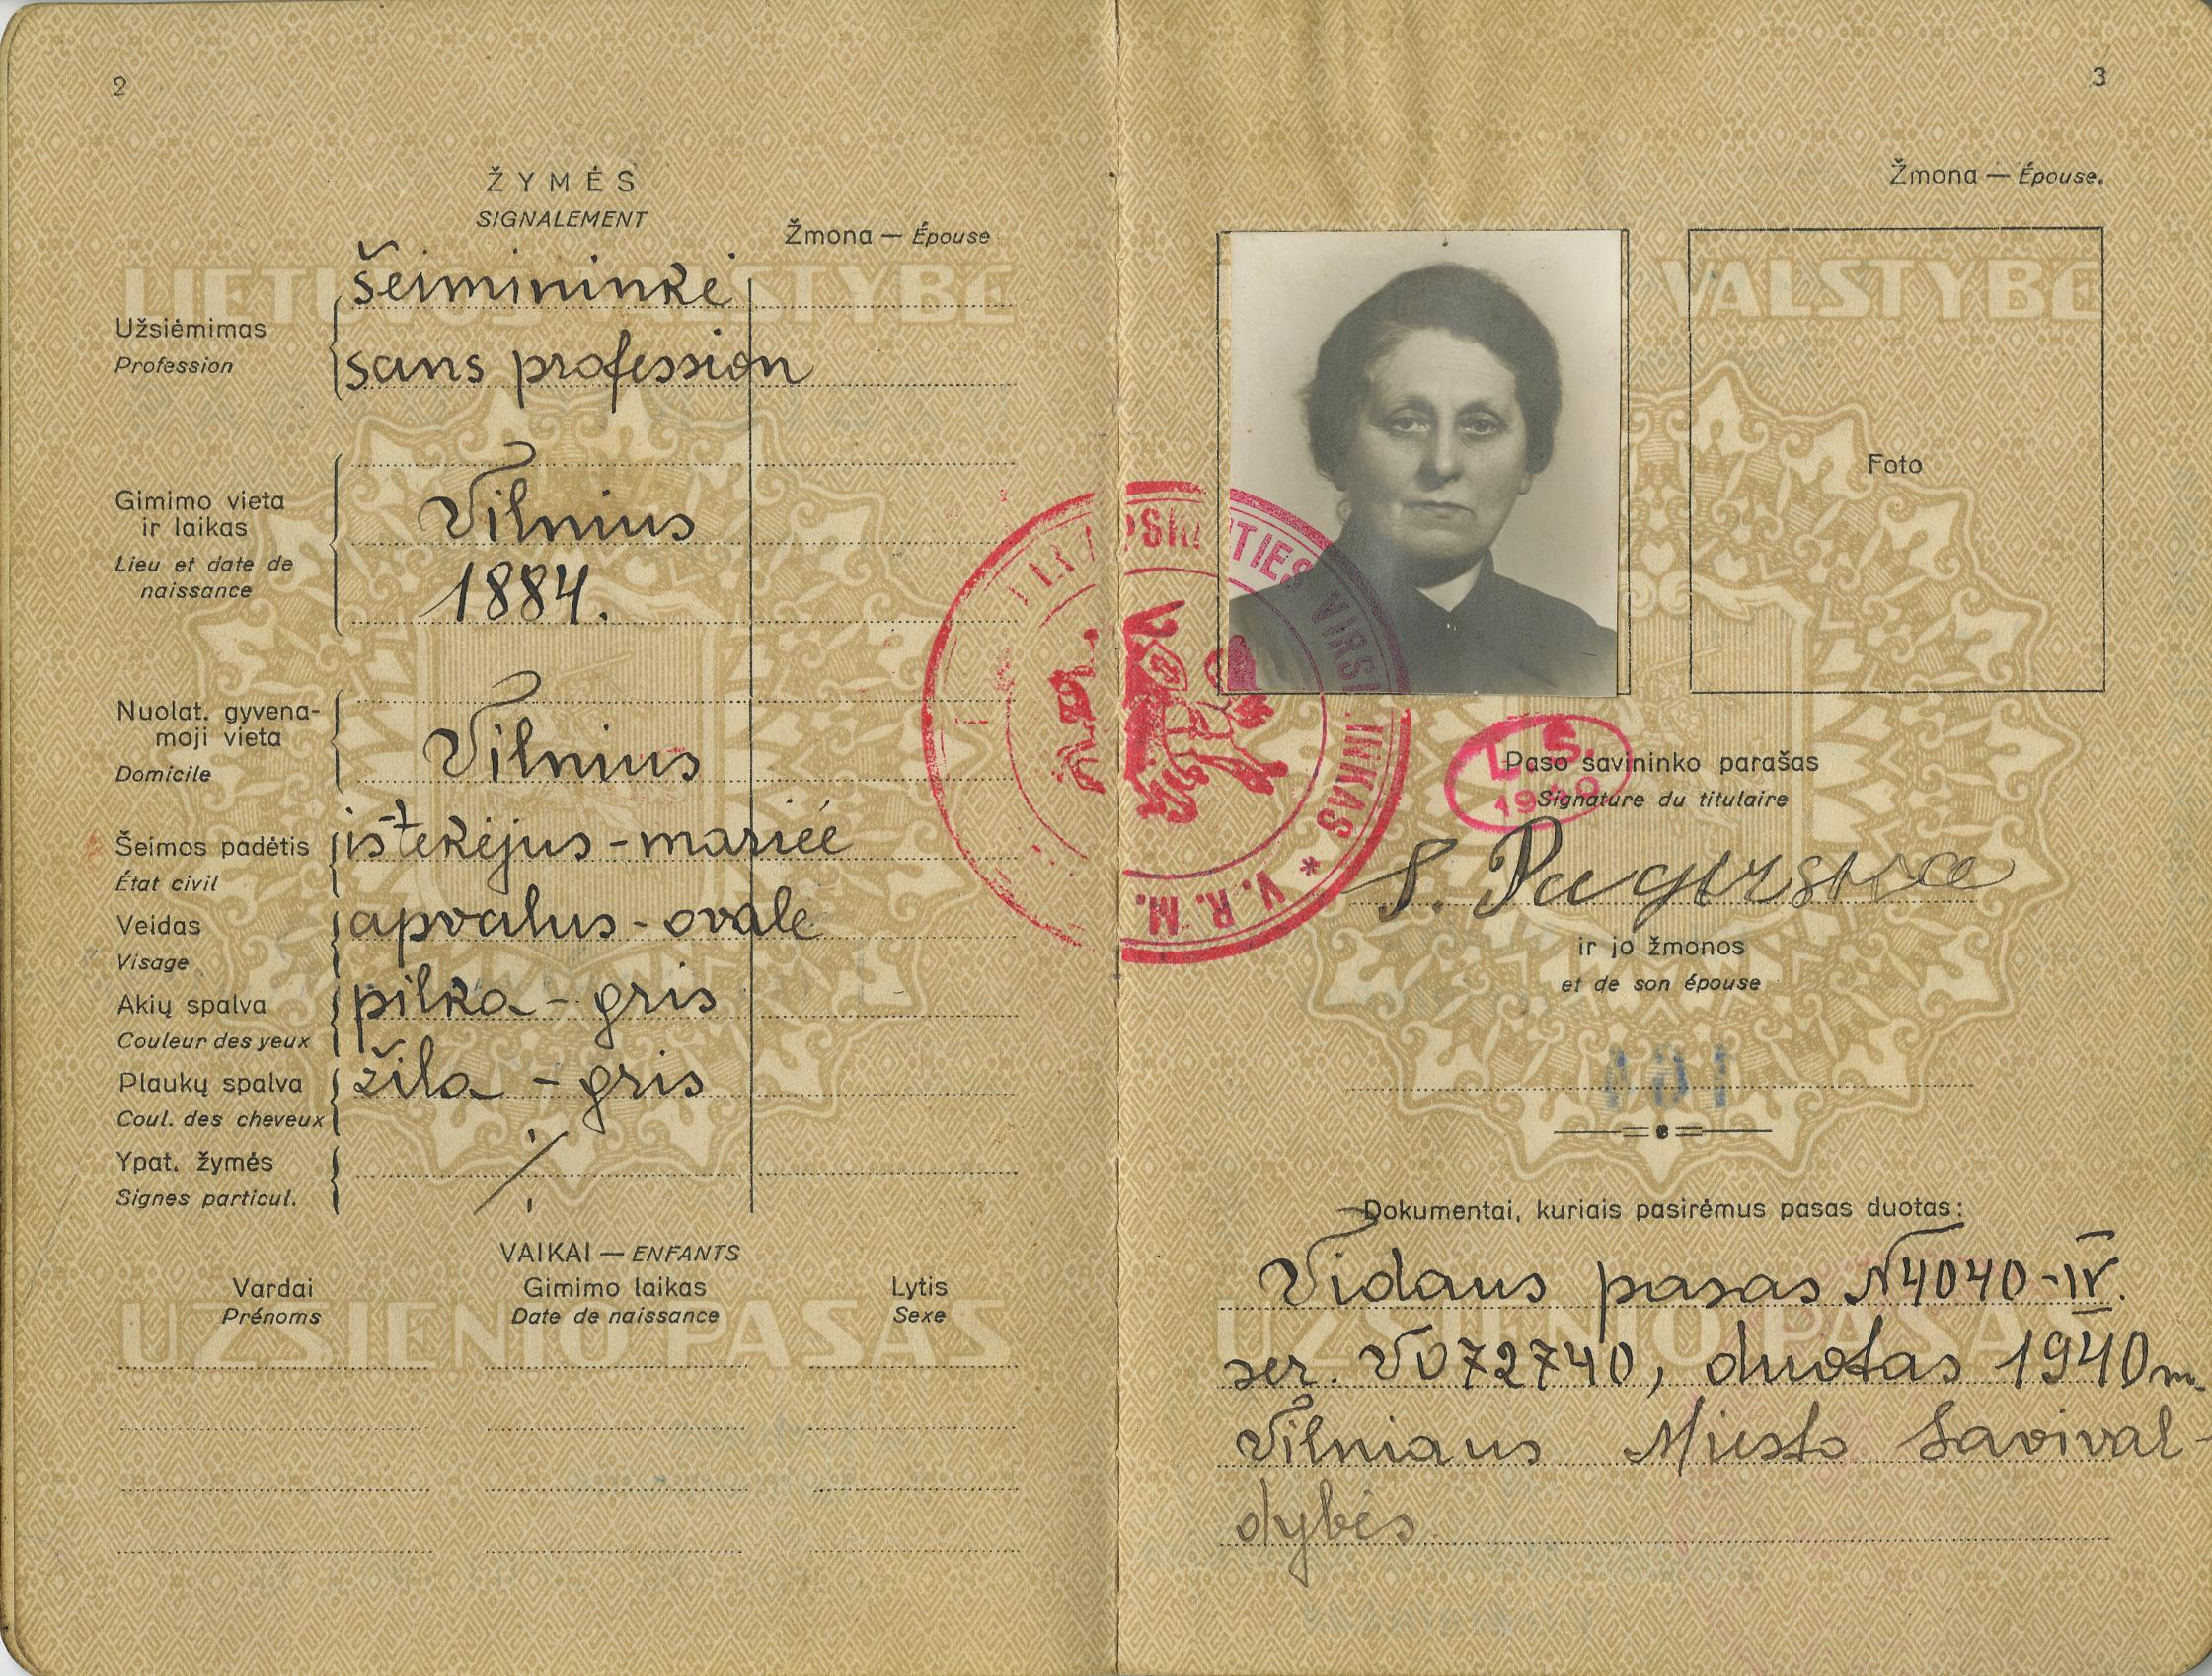 2
ŽYMĖS
SIGNALEMENT
Žmona — Épouse
LIETUVOS VALSTYBĖ
Užsiėmimas
Profession
šeimininkė
sans profession
Gimimo vieta
ir laikas
Lieu et date de
naissance
Vilnius
1884.
Nuolat. gyvena-
moji vieta
Domicile
Vilnius
Šeimos padėtis
État civil
ištekėjus - mariée
Veidas
Visage
apvalus - ovale
Akių spalva
Couleur des yeux
pilka - gris
Plaukų spalva
Coul. des cheveux
žila - gris
Ypat. žymės
Signes particul.
VAIKAI — ENFANTS
Vardai
Prénoms
Gimimo laikas
Date de naissance
Lytis
Sexe
UŽSIENIO PASAS
3
Žmona — Épouse.
VALSTYBĖ
Foto
TIES VIRŠININKAS * V. R. M.
L. S.
Paso savininko parašas
Signature du titulaire
S.
ir jo žmonos
et de son épouse
Dokumentai, kuriais pasirėmus pasas duotas:
Vidaus pasas N4040-IV.
ser. V072740, duotas 1940 m.
Vilniaus Miesto Savival-
dybės
UŽSIENIO PASA